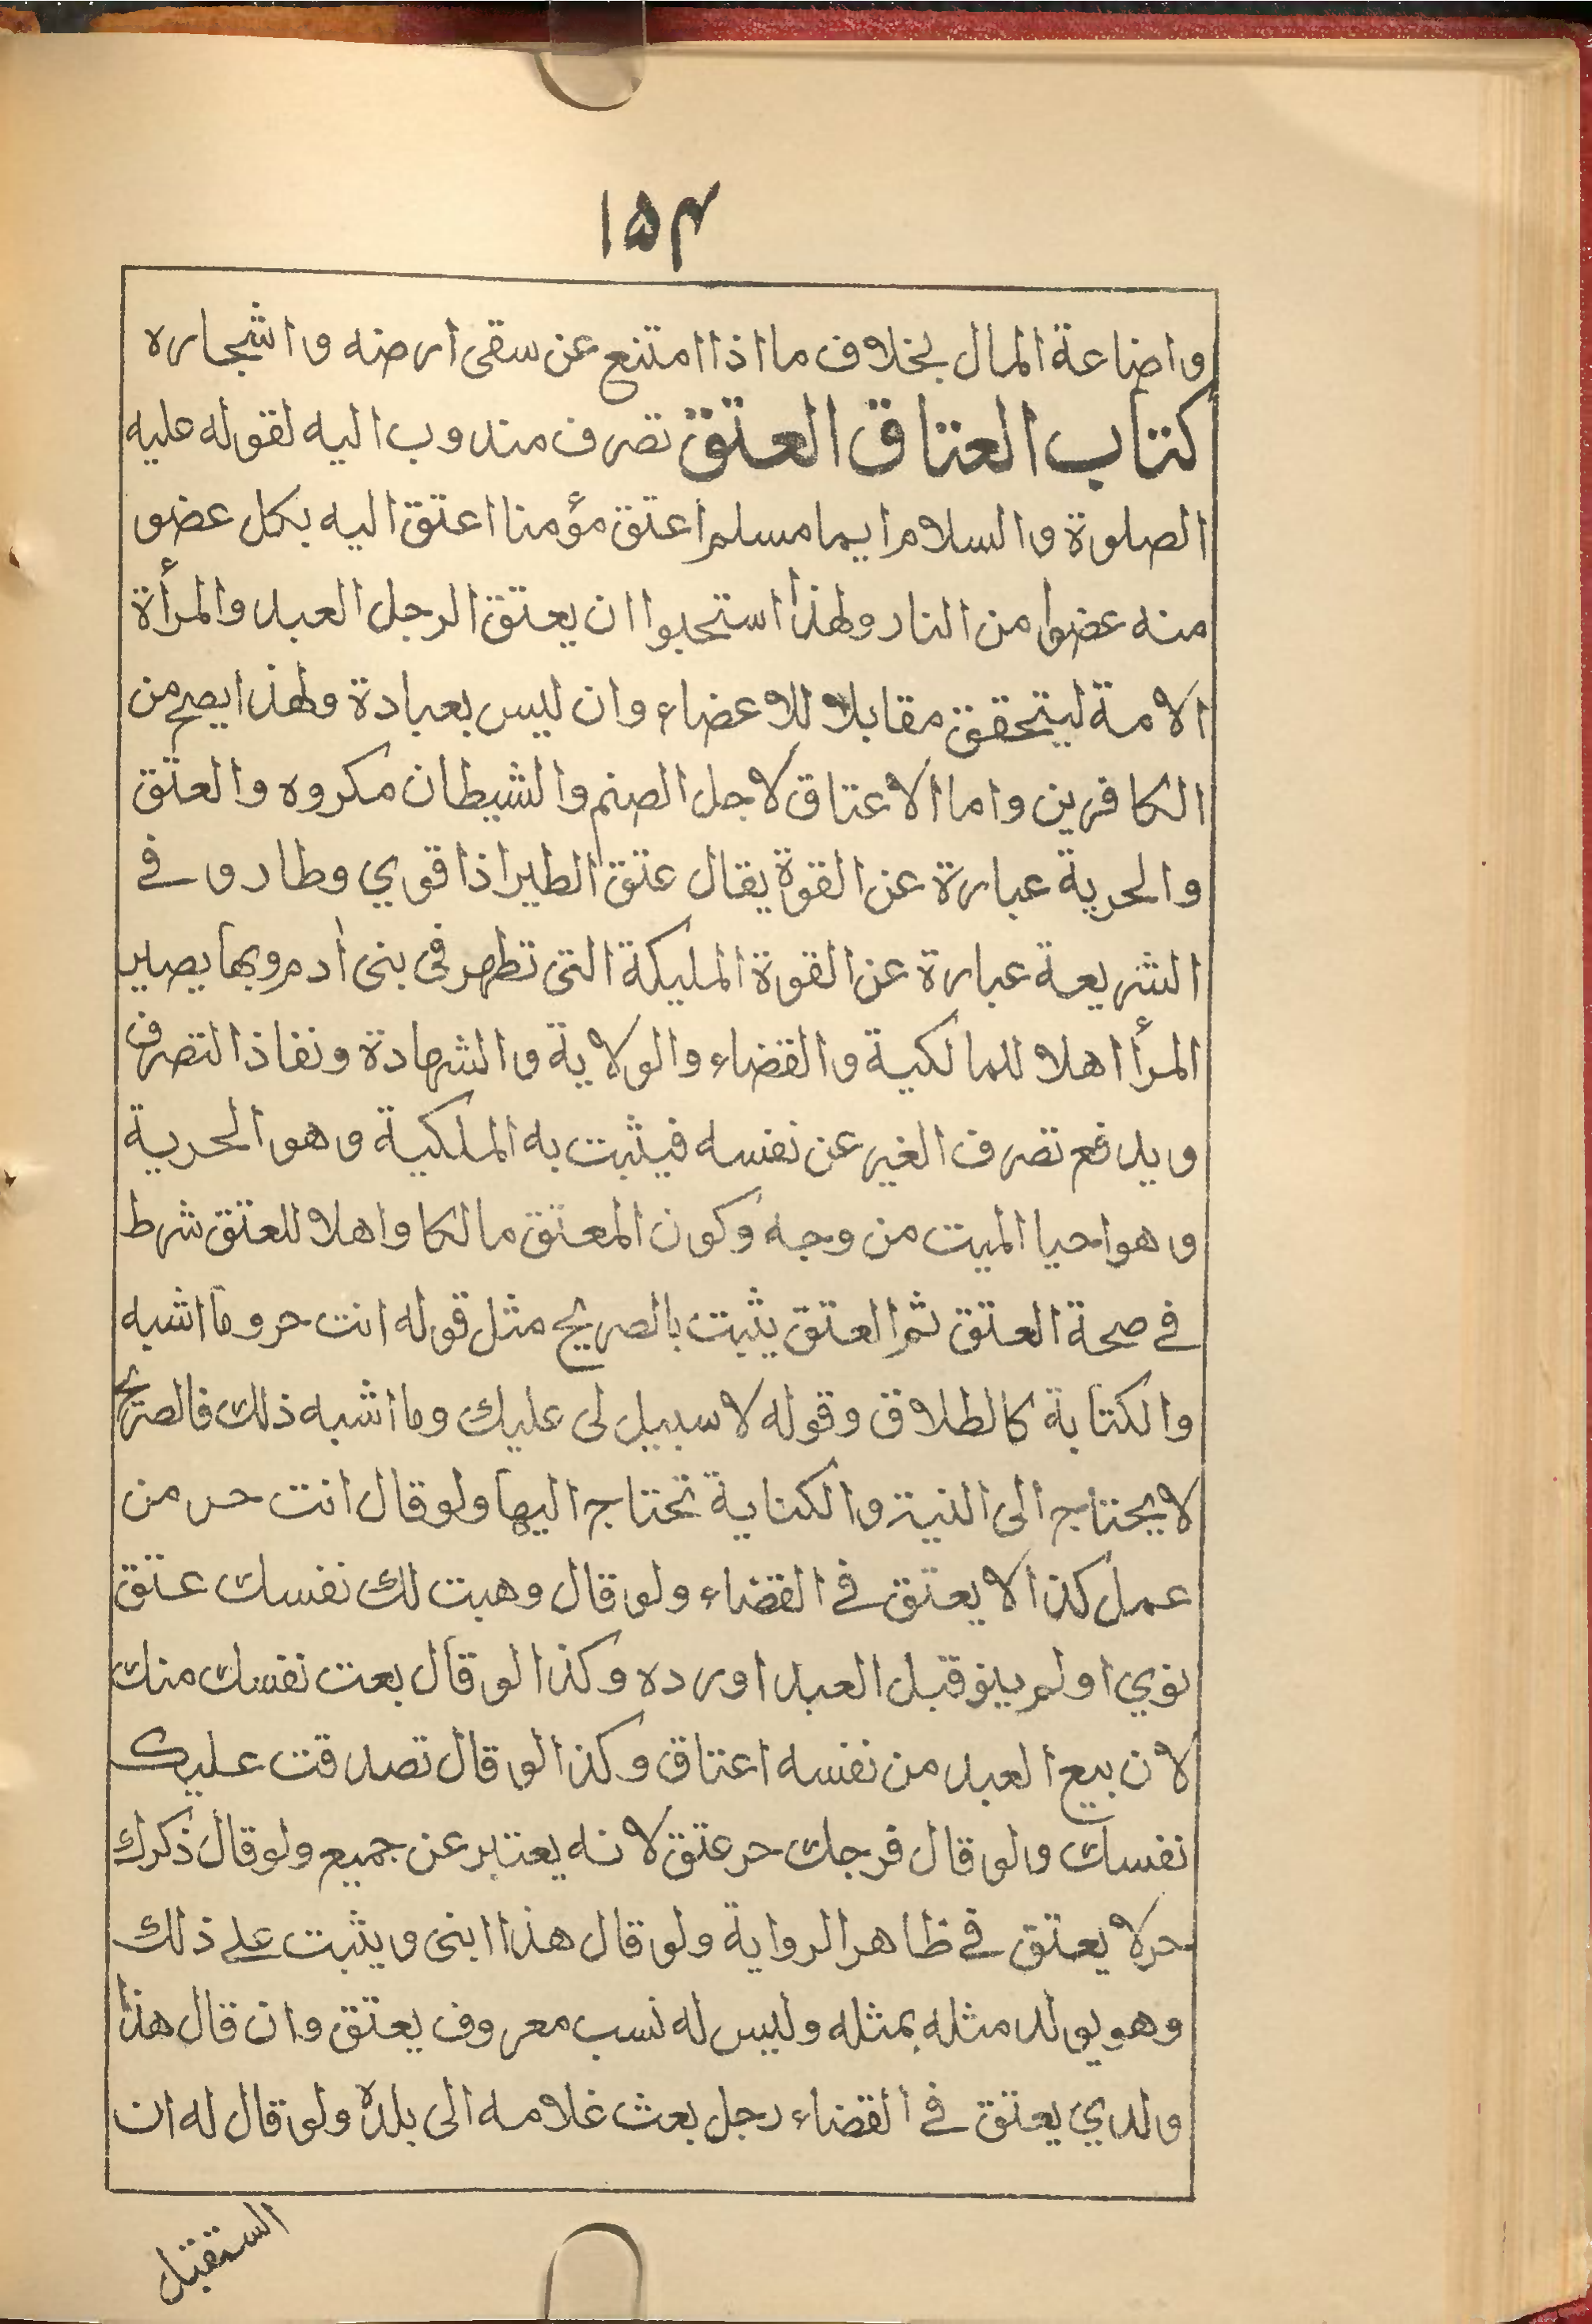 ١٥٤
واضاعة المال بخلاف ما اذا امتنع عن سقى ارضه واشجاره
كتاب العتاق العتق تصرف مندوب اليه لقوله عليه
الصلوة والسلام ايما مسلم اعتق مؤمنا اعتق اليه بكل عضو
منه عضوا من النار ولهذا استحبوا ان يعتق الرجل العبد والمرأة
الامة ليتحقق مقابلا للاعضاء وان ليس بعبادة ولهذا يصح من
الكافرين واما الاعتاق لاجل الصنم والشيطان مكروه والعتق
والحرية عبارة عن القوة يقال عتق الطير اذا قوي وطار و في
الشريعة عبارة عن القوة المليكة التى تظهر فى بنى أدم وبها يصير
المرأ اهلا للمالكية والقضاء والولاية والشهادة ونفاذ التصرف
ويدفع تصرف الغير عن نفسه فيثبت به الملكية وهو الحرية
وهو احيا الميت من وجه وكون المعتق مالكا واهلا للعتق شرط
في صحة العتق ثم العتق يثبت بالصريح مثل قوله انت حر وما اشبه
والكتابة كالطلاق وقوله لا سبيل لى عليك وما اشبه ذلك فالصريح
لا يحتاج الى النية والكناية تحتاج اليها ولو قال انت حر من
عمل كذا لا يعتق في القضاء ولو قال وهبت لك نفسك عتق
نوي او لم ينو قبل العبد او رده وكذا لو قال بعت نفسك منك
لان بيع العبد من نفسه اعتاق وكذا لو قال تصدقت عليك
نفسك ولو قال فرجك حر عتق لانه يعتبر عن جميع ولو قال ذكرك
حر لا يعتق في ظاهر الرواية ولو قال هذا ابنى ويثبت على ذلك
وهو يولد مثله بمثله وليس له نسب معروف يعتق وان قال هذا
ولدي يعتق في القضاء رجل بعث غلامه الى بلده ولو قال له ان
استقبل